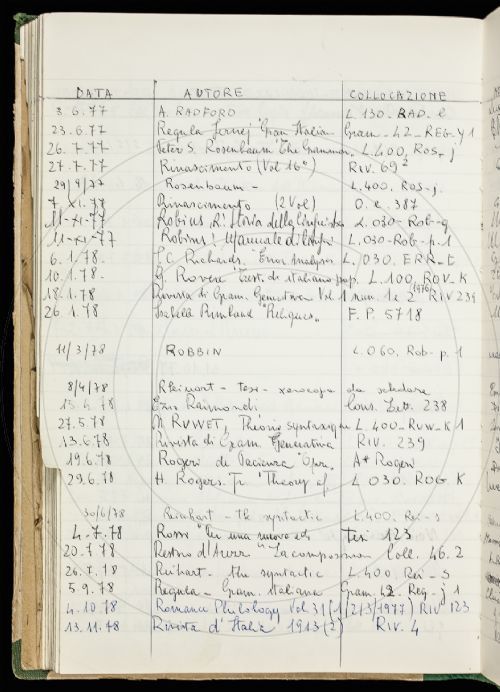 DATA AUTORE COLLOCAZIONE
3.6.77 A. RADFORD L. 130. RAD. e
23.6.77 Regula Jernej "Gram Italia- Gram-42-REG-y1
26.7.77 Peter S. Rosenbaum "The Grammar. L.400, ROS-j
27.7.77 Rinascimento (Vol 16°) RIV. 69²
29/9/77 Rosenbaum - L.400. ROS-j.
7.XI.77 Rinascimento (2 Vol) O.e. 387
11-XI-77 Robins, R: Storia della linguistica L.030-Rob-q
11-XI-77 Robins: Manuale di L.030-Rob-p.1
6.1.78. J.C. Richards. Error Analysis L. 030. ERR-E
10.1.78. G. Rovere Test. de italiano pop. L.100, ROV-K
18.1.78 Rivista di Gram. Generativa Vol. 1 num. 1 e 2 (1976) RIV 239
26.1.78 Isabella Rimbaud "Reliques" F.P. 5718
11/3/78 ROBBIN L.060. Rob-p.1
8/4/78 Reinhart - tesi - xerocopia da schedare
13.4.78 Ezio Raimondi Cons. Lett. 238
27.5.78 N. RUWET, Théorie syntaxique L.400-RUW-K1
13.6.78 Rivista di Gram. Generativa RIV. 239
19.6.78 Rogeri de Pacienza Opere A* Rogeri
29.6.78 H. Rogers Jr. "Theory of L 030. ROG. K
30/6/78 Reinhart - the syntactic L.400. Rei-s
4.7.78 Rossi "Per una nuova ed. tesi 123
20.7.78 Restoro d'Arezz "La composizion Coll. 46.2
26.7.78 Reihart - the syntactic L.400. Rei-S
5.9.78 Regula - Gram. Italiana Gram. 42. Reg-j1
4.10.78 Romance Philology Vol 31 (1/2/3/1977) RIV 123
13.11.78 Rivista d'Italia 1913 (2) RIV. 4